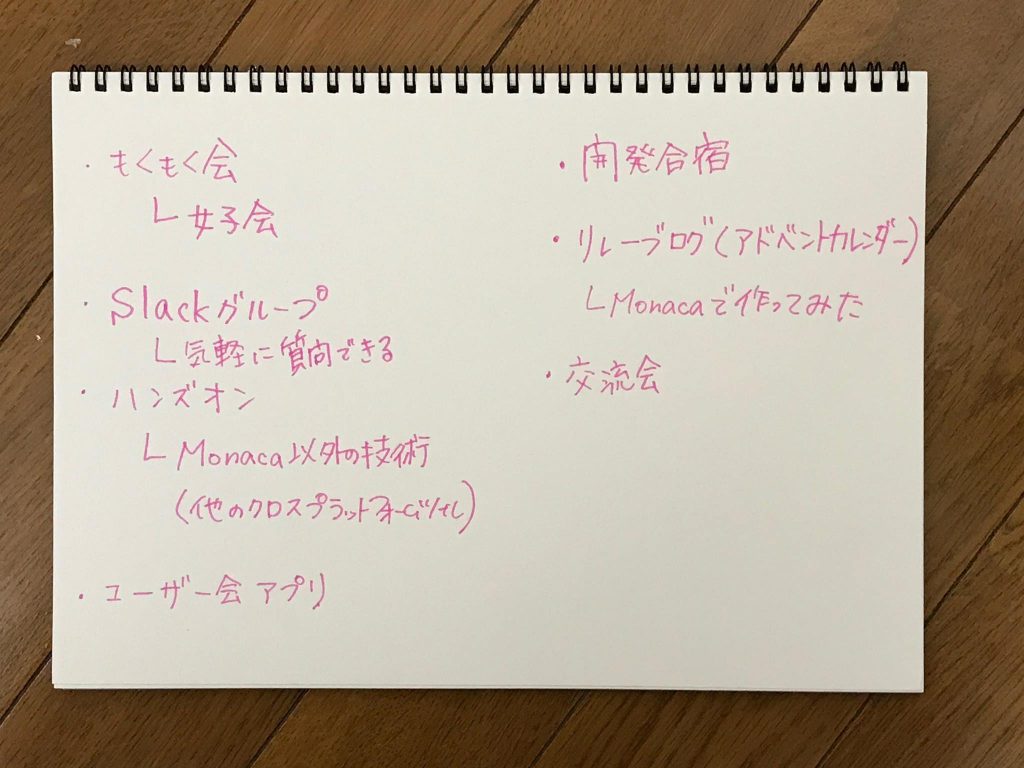 ・もくもく会
└ 女子会
・Slackグループ
└ 気軽に質問できる
・ハンズオン
└ Monaca以外の技術
(他のクロスプラットフォームツール)
・ユーザー会 アプリ
・開発合宿
・リレーブログ(アドベントカレンダー)
└ Monacaで作ってみた
・交流会